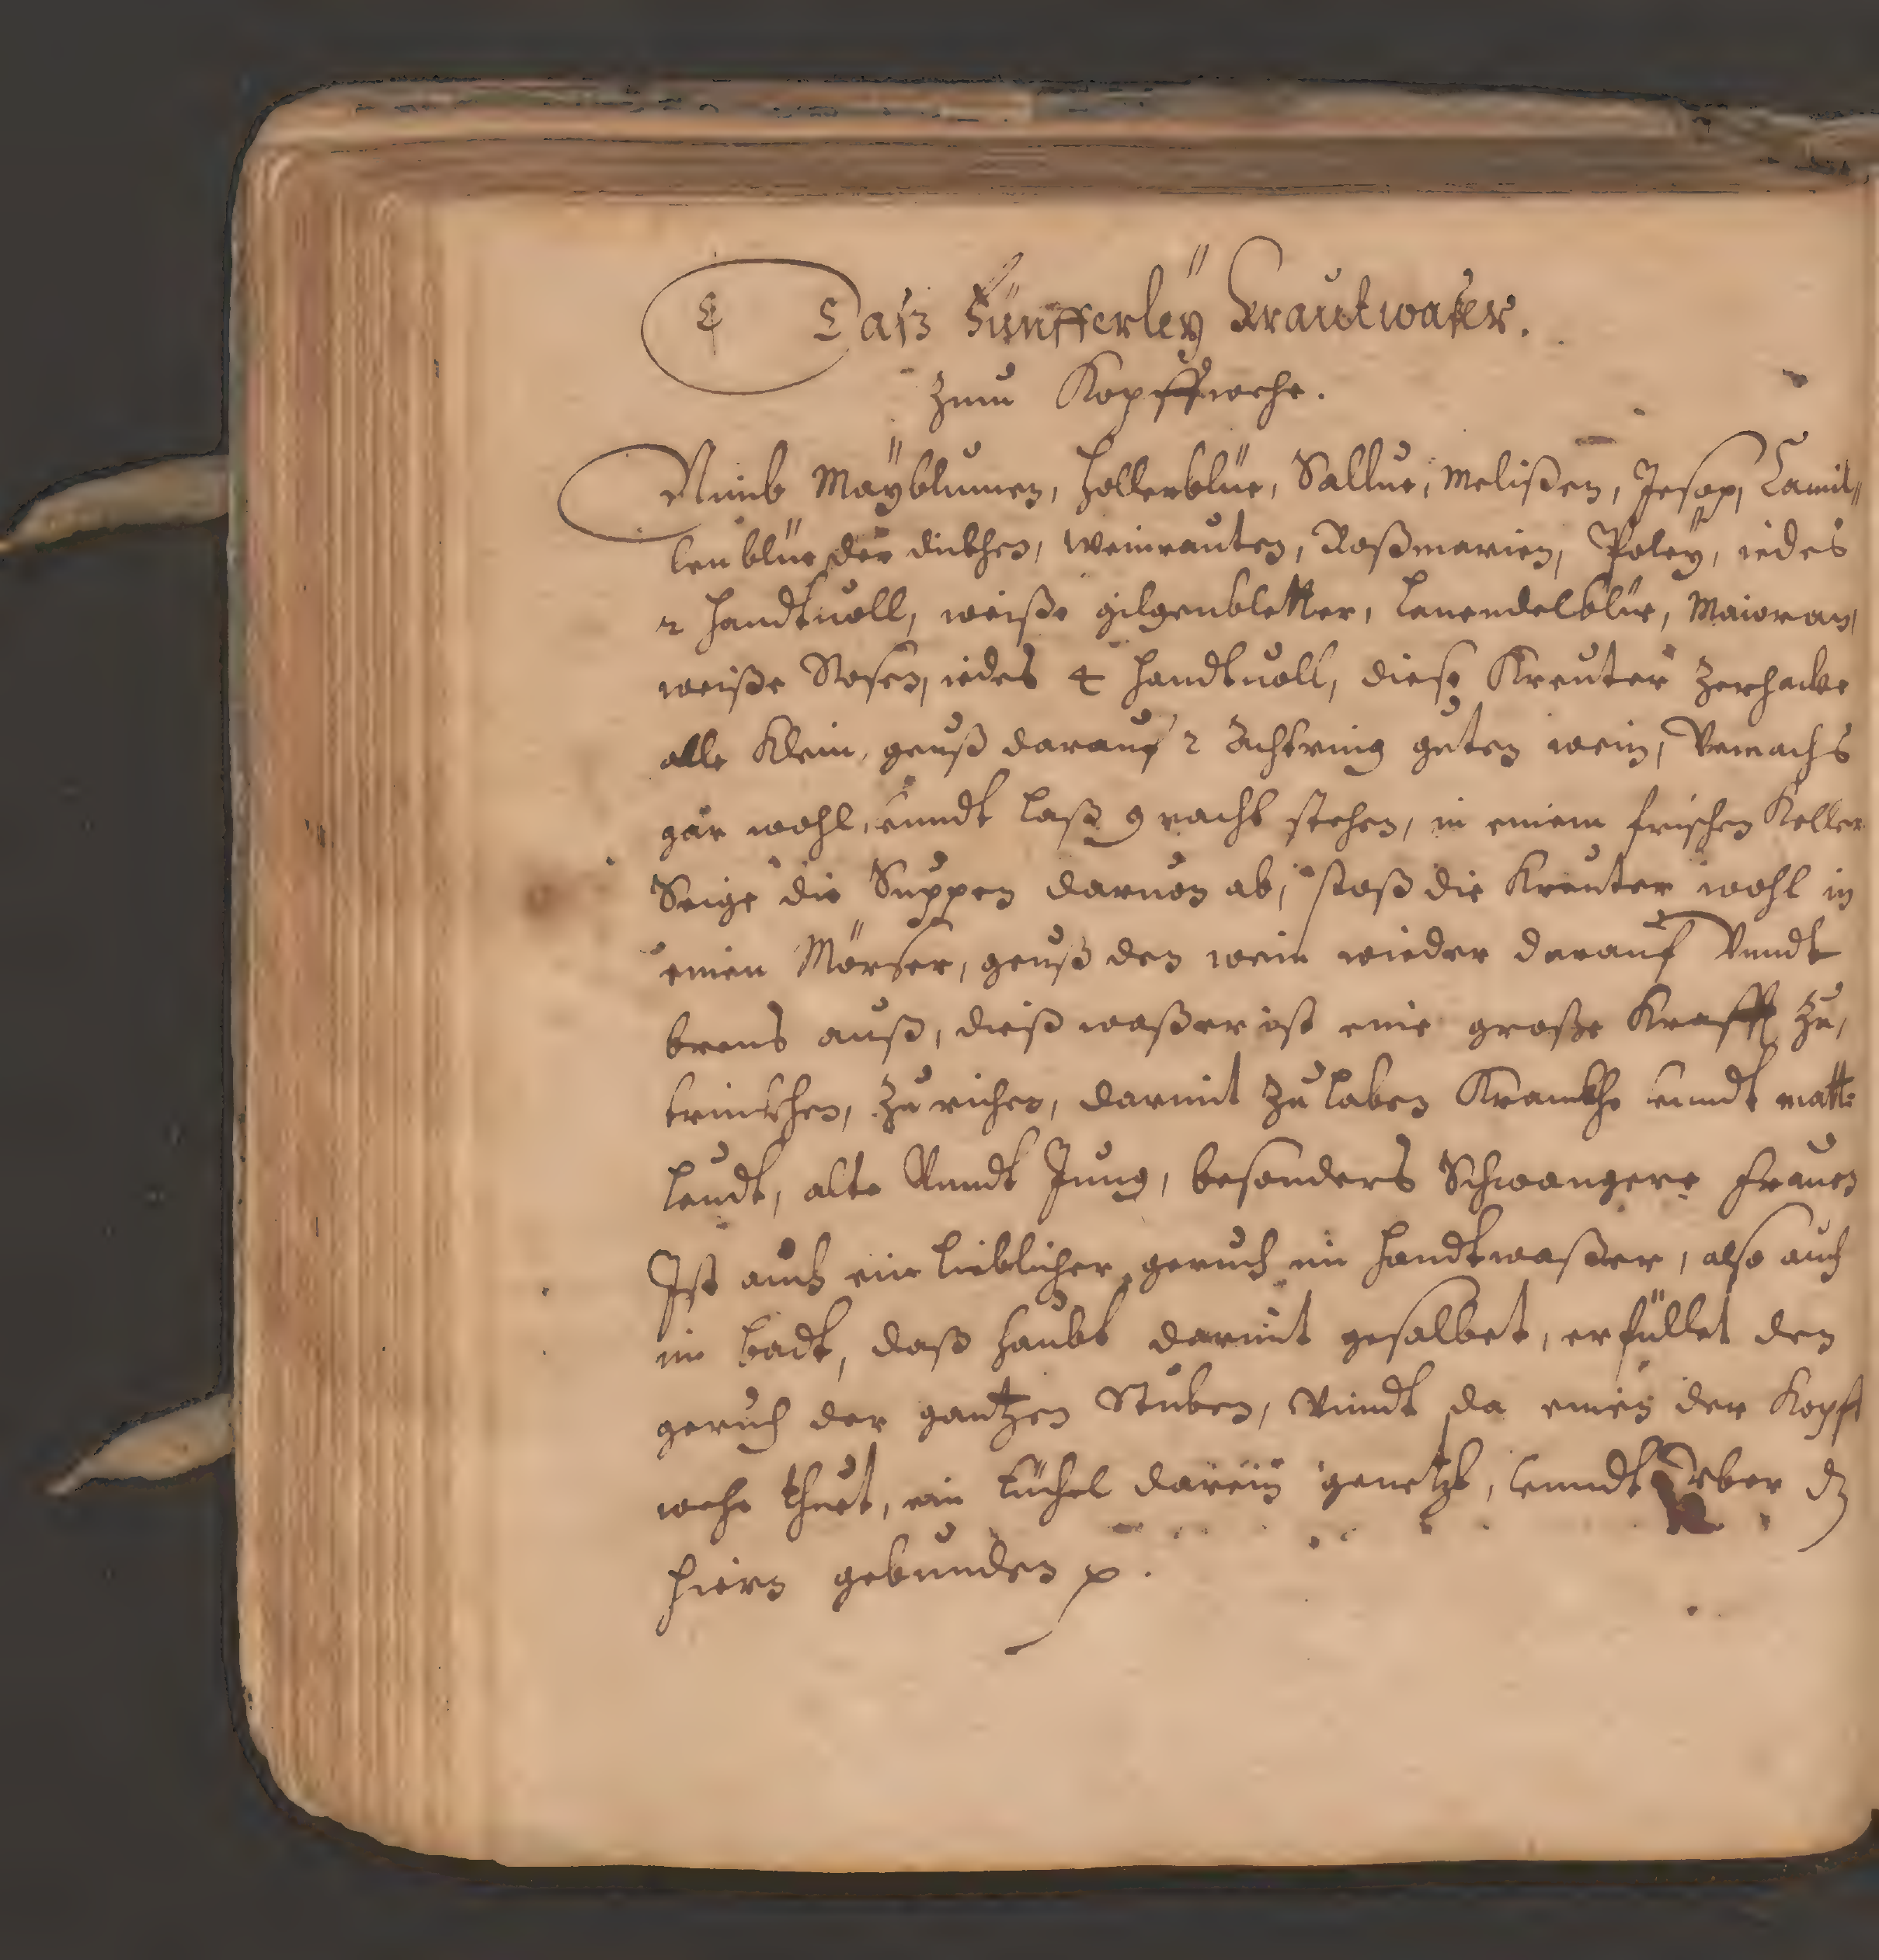 Daß Fünfferleÿ Krautwaßer.
Zum Kopffwehe.
Nimb Maÿblumen, Hollerblüe, SalLue, Melißen, Jesop, Camil¬
lenblüe der dickhen, Weinrauten, Roßmarien, Poleÿ, iedes
2 handtuoll, weiße gilgenbletter, Lauendelblüe, Maioran,
weiße Rosen, iedes 4 handtuoll, diese Kreuter zerhackhe
alle klein, geuß darauf 2 Achtring guten wein, Vermachs
gar wohl, vnndt laß 9 nacht stehen, in einem frischen Keller
Seige die Suppen daruon ab, stoß die Kreuter wohl in
einen Mörser, geuß den wein wieder darauf Vnndt
brens auß, dieß waßer ist eine große Krafft zu,
trinckhen, zu richen, darmit zu laben Kranckhe vnndt matte
leudt, alte Vnndt Jung, besonders Schwangere frauen
Ist auch ein lieblicher geruch im handtwaßer, also auch
im badt, daß haubt darmit gesalbet, erfüllet den
geruch der gantzen Stuben, Vnndt da einen der Kopff
wehe thuet, ein tüchel darein genetzt, vnndt Vber dz
hiern gebunden p.